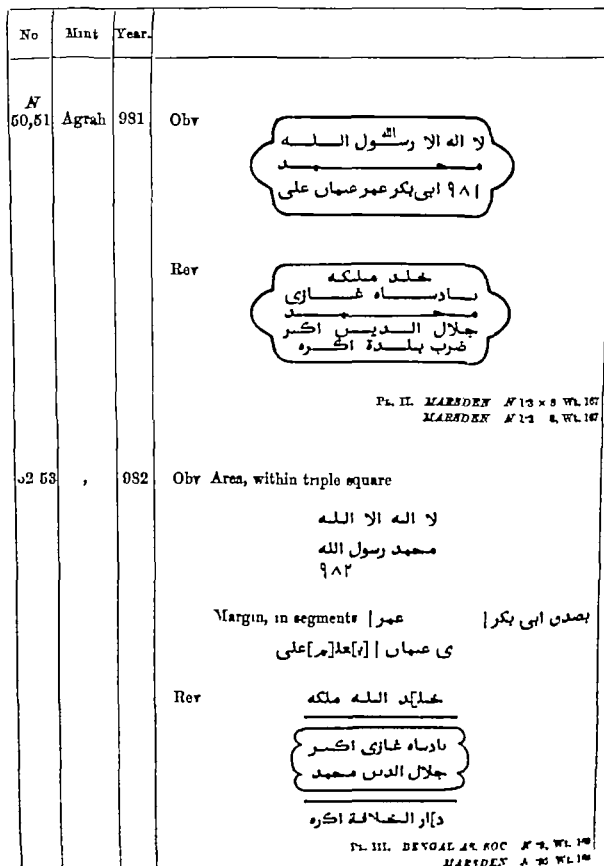 No Mint Year.
N
50,51 Agrah 981 Obv
لا اله الا رسول اللـه
الله
محمد
٩٨١ ابى بكر عمر عىماں على
Rev
خلد ملكه
ىادىـاه غازى
محمد
جلال الديں اكىر
ضرب بلدة اكره
Pl. II. MARSDEN N 1·3 × 8 Wt. 167
MARSDEN N Wt. 167
52 53 , 982 Obv Area, within triple square
لا اله الا اللـه
محمد رسول الله
٩٨٢
Margin, in segments | عمر بصدى ابى بكر |
ى عىماں | [ى]علـ[م]على
Rev
خلـ]د اللـه ملكه
ىادىاه غازى اكىر
جلال الدىں محمد
د]ار الخلافة اكره
Pl. III. BENGAL AS. SOC Wt.
MARSDEN Wt.